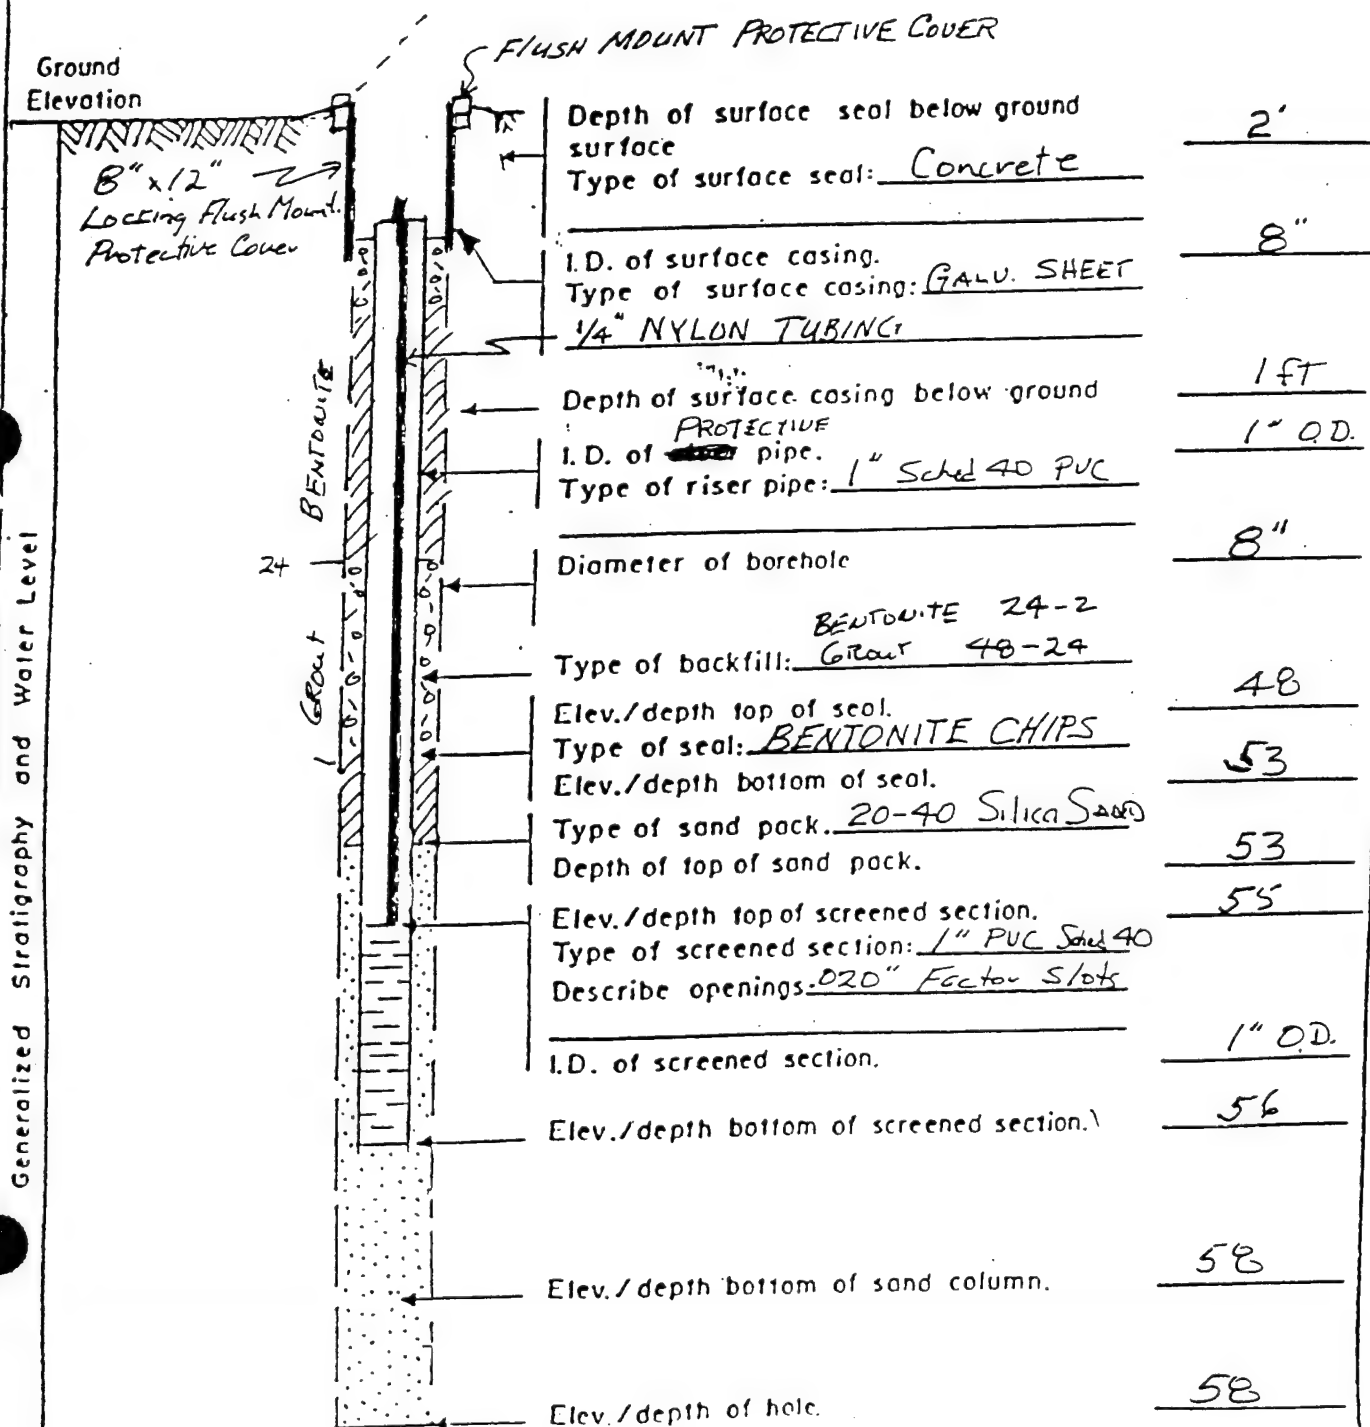 FLUSH MOUNT PROTECTIVE COVER
Ground
Elevation
8" x 12"
Locking Flush Mount
Protective Cover
Depth of surface seal below ground
surface
2'
Type of surface seal: Concrete
I.D. of surface casing.
8"
Type of surface casing: GALV. SHEET
1/4" NYLON TUBING
Depth of surface casing below ground
1 FT
PROTECTIVE
I.D. of pipe.
1" O.D.
Type of riser pipe: 1" Sched 40 PVC
Diameter of borehole
8"
BENTONITE
24
GROUT
BENTONITE 24-2
Type of backfill: Grout 48-24
Elev./depth top of seal.
48
Type of seal: BENTONITE CHIPS
Elev./depth bottom of seal.
53
Type of sand pack. 20-40 Silica SAND
Depth of top of sand pack.
53
Elev./depth top of screened section.
55
Type of screened section: 1" PVC Sched 40
Describe openings. .020" Factor Slots
I.D. of screened section.
1" O.D.
Elev./depth bottom of screened section.
56
Elev./depth bottom of sand column.
58
Elev./depth of hole.
58
Generalized Stratigraphy and Water Level